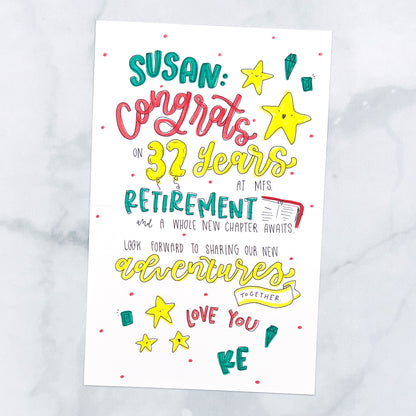 SUSAN:
Congrats
ON 32 Years
AT MFS.
RETIREMENT
and A WHOLE NEW CHAPTER AWAITS.
LOOK FORWARD TO SHARING OUR NEW
adventures
TOGETHER.
LOVE YOU
KE